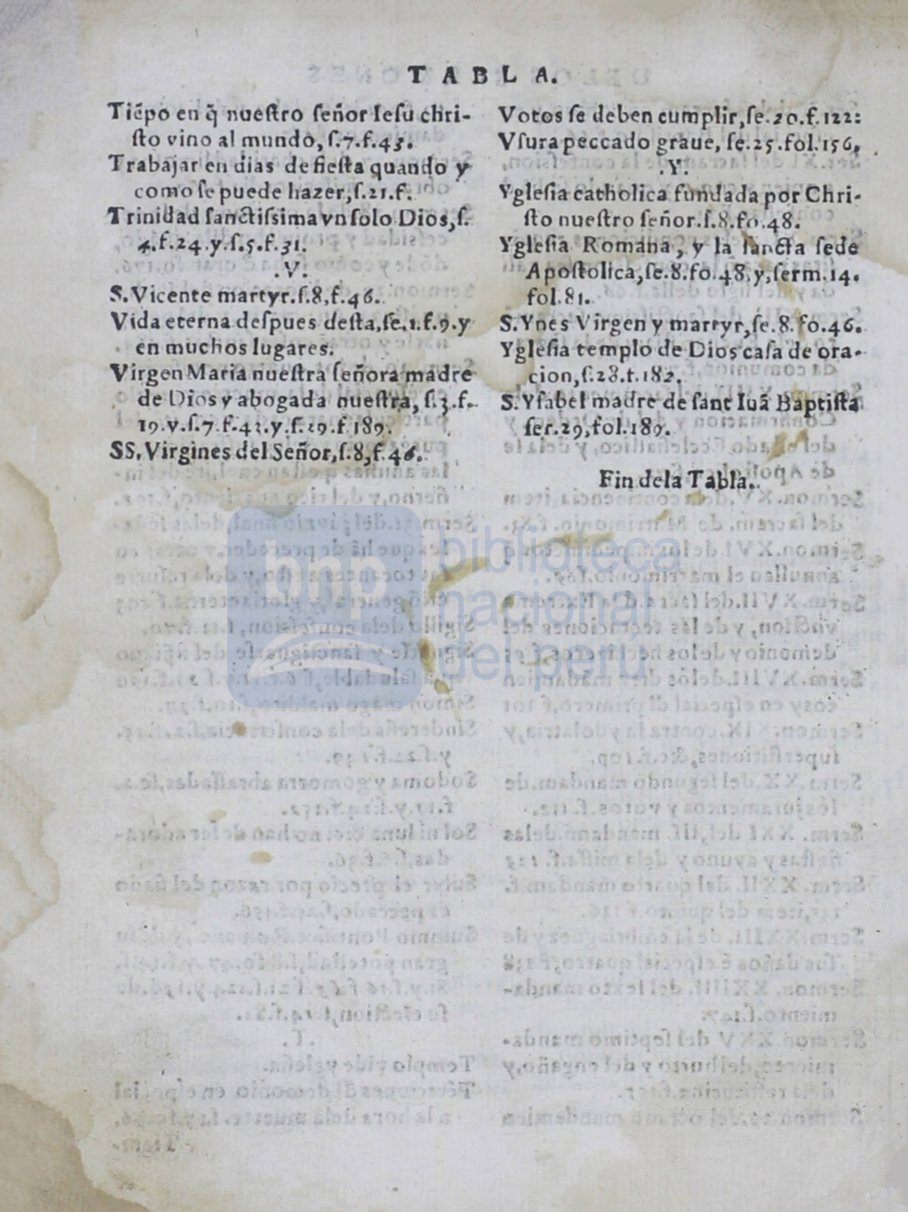 TABLA.
Tiẽpo en q̃ nueſtro ſeñor Ieſu chri-
ſto vino al mundo, ſ.7.f.43.
Trabajar en dias de fieſta quando y
como ſe puede hazer, ſ.21.f.
Trinidad ſanctiſsima vn ſolo Dios, ſ.
4.f.24.y.ſ.5.f.31.
.V.
S. Vicente martyr. ſ.8, f.46.
Vida eterna deſpues deſta, ſe.1.f.9.y
en muchos lugares.
Virgen Maria nueſtra ſeñora madre
de Dios y abogada nueſtra, ſ.3.f.
19.v.ſ.7.f.43.y.ſ.29.f 189.
SS. Virgines del Señor, ſ.8, f.46.
Votos ſe deben cumplir, ſe.20.f.122:
Vſura peccado graue, ſe.25.fol.156,
.Y.
Ygleſia catholica fundada por Chri-
ſto nueſtro ſeñor.ſ.8.fo.48.
Ygleſia Romana, y la ſancta ſede
Apoſtolica, ſe.8.fo.48.y, ſerm.14.
fol.81.
S. Ynes Virgen y martyr, ſe.8.fo.46.
Ygleſia templo de Dios caſa de ora-
cion, ſ.28.t.182.
S. Yſabel madre de ſant Iuã Baptiſta
ſer.29, fol.189.
Fin dela Tabla.
bnp biblioteca
nacional
del perú